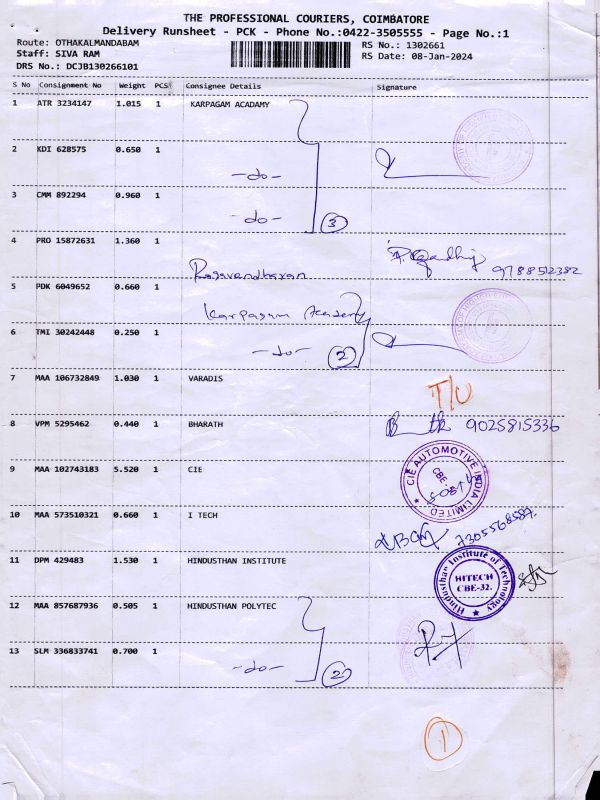 THE PROFESSIONAL COURIERS, COIMBATORE
Delivery Runsheet - PCK - Phone No.:0422-3505555 - Page No.:1
Route: OTHAKALMANDABAM
Staff: SIVA RAM
DRS No.: DCJB130266101
RS No.: 1302661
RS Date: 08-Jan-2024
S No Consignment No Weight PCS Consignee Details Signature
1 ATR 3234147 1.015 1 KARPAGAM ACADAMY
2 KDI 628575 0.650 1 -do-
3 CMM 892294 0.960 1 -do- 3
4 PRO 15872631 1.360 1 Ragavendharan 9788512382
5 PDK 6049652 0.660 1 Karpagam Academy
6 TMI 30242448 0.250 1 -do- 2
7 MAA 106732849 1.030 1 VARADIS T/U
8 VPM 5295462 0.440 1 BHARATH 9025815336
9 MAA 102743183 5.520 1 CIE CIE AUTOMOTIVE INDIA LIMITED CBE
10 MAA 573510321 0.660 1 I TECH 7305568587.
11 DPM 429483 1.530 1 HINDUSTHAN INSTITUTE Hindusthan Institute of Technology HITECH CBE-32.
12 MAA 857687936 0.505 1 HINDUSTHAN POLYTEC
13 SLM 336833741 0.700 1 -do- 2
1